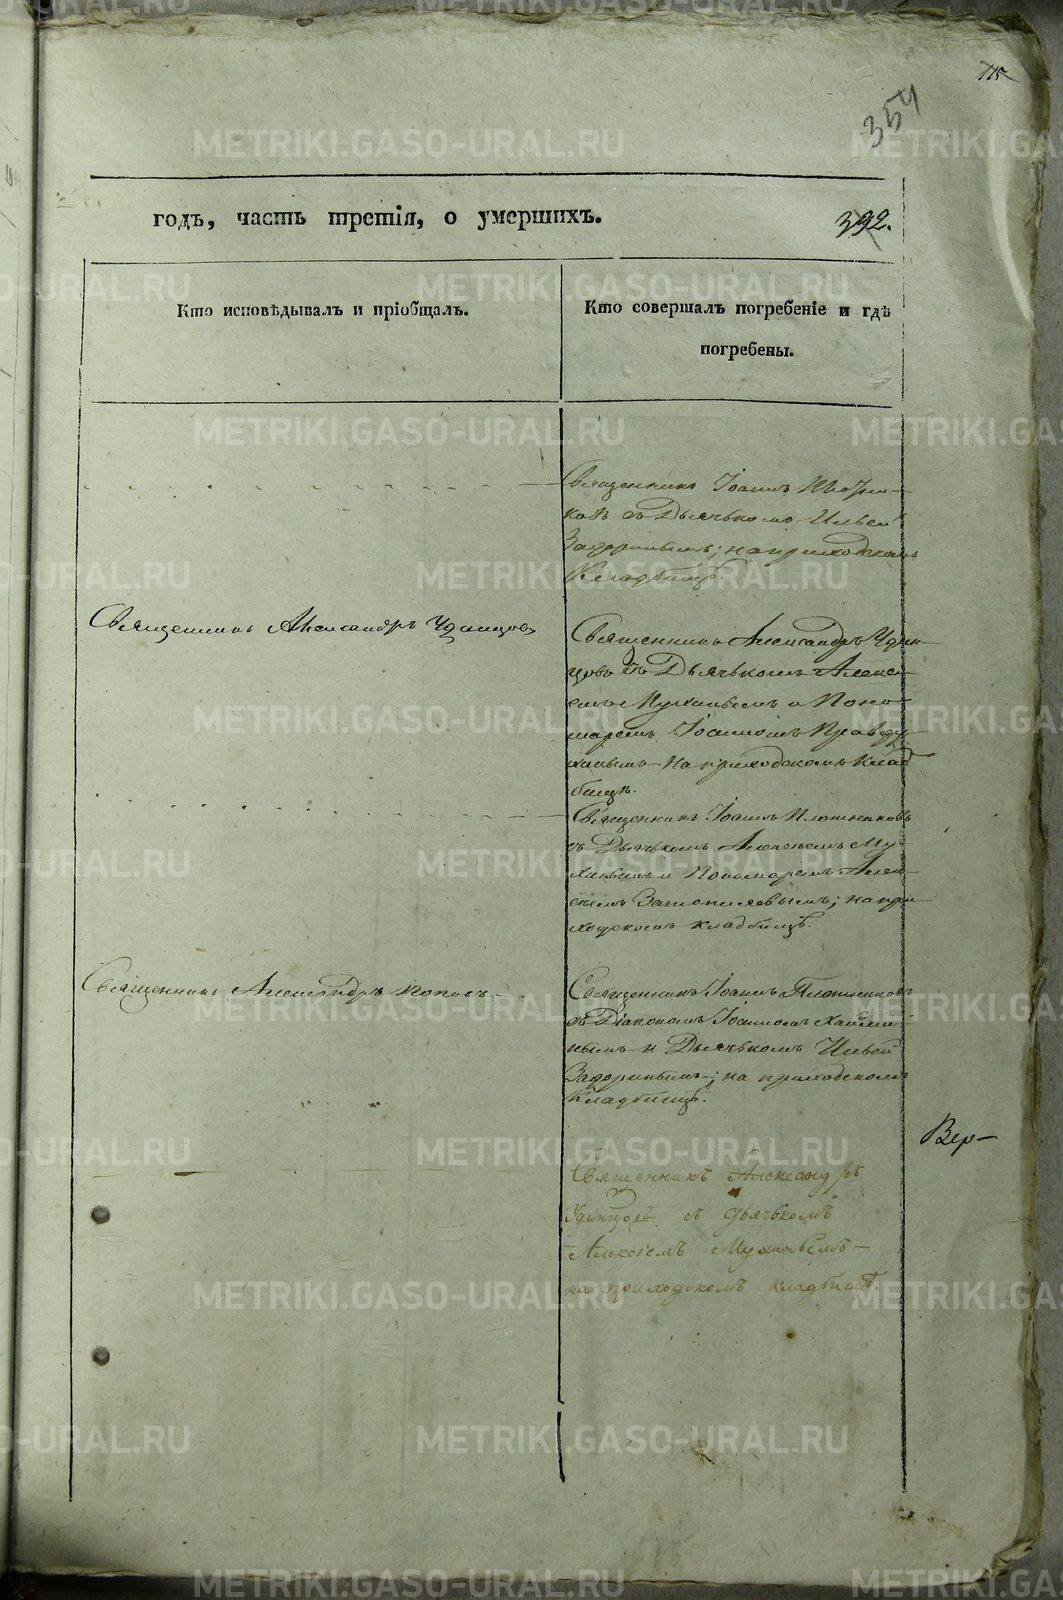 115
354
годъ, часть третія, о умершихъ.
392.
Кто исповѣдывалъ и пріобщалъ.
Кто совершалъ погребеніе и гдѣ
погребены.
Священникъ Іоаннъ
съ Дьячькомъ Ильей
Задоринымъ; на приходскомъ
Кладбищѣ.
Священникъ Александръ Удинцовъ
Священникъ Александръ Удин-
цовъ съ Дьячькомъ Алексѣ-
емъ Мухинымъ и Поно-
маремъ Іоанномъ Правду-
хинымъ на приходскомъ клад
бищѣ.
Священникъ Іоаннъ Плотниковъ
съ Дьячькомъ Алексѣемъ Му-
хинымъ и Пономаремъ Алек-
сѣемъ на при-
ходскомъ кладбищѣ.
Священникъ Александръ Поповъ
Священникъ Іоаннъ Плотниковъ
съ Діакономъ Іоанномъ
нымъ и Дьячькомъ Ильей
Задоринымъ; на приходскомъ
Кладбищѣ.
Вер-
Священникъ Александръ
Удинцовъ съ дьячькомъ
Алексѣемъ Мухинымъ
на приходскомъ кладбищѣ.
METRIKI.GASO-URAL.RU